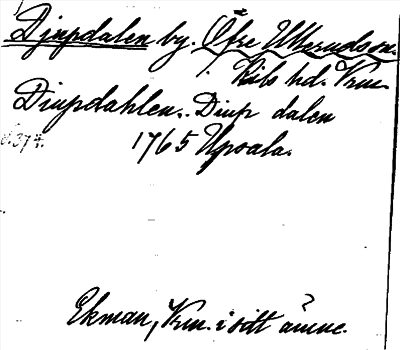 Djupdalen by. Öfre Ullerud sn.
Kils hd. Vrm.
Diupdahlen.. Diup dalen
s. 374.
1765 Upsala.
?
Ekman, Vrm. i sitt ämne.